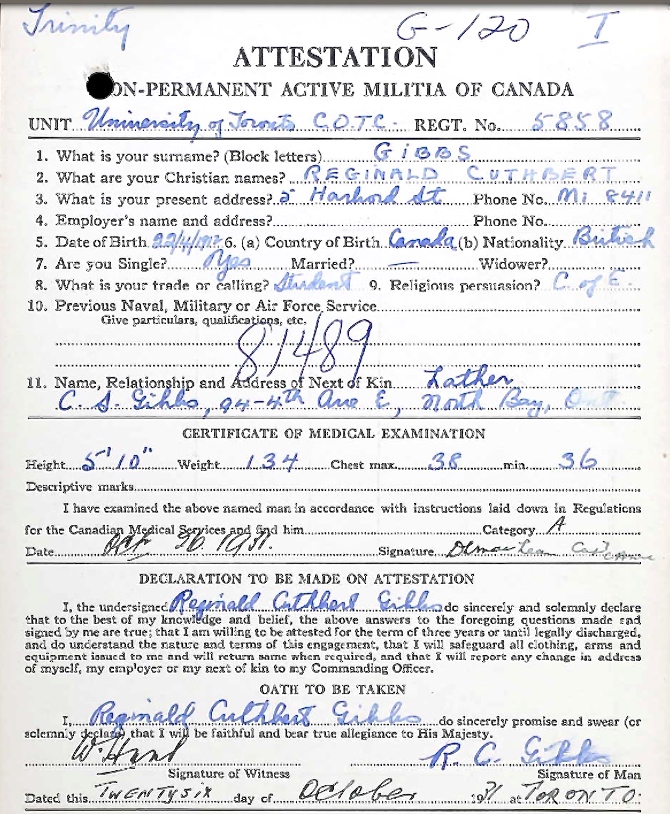 Trinity G-120 I
ATTESTATION
ON-PERMANENT ACTIVE MILITIA OF CANADA
UNIT University of Toronto C.O.T.C. REGT. No. 5858
1. What is your surname? (Block letters) GIBBS
2. What are your Christian names? REGINALD CUTHBERT
3. What is your present address? 5 Harbord St Phone No. Mi 8411
4. Employer's name and address? Phone No.
5. Date of Birth 22/4/1917 6. (a) Country of Birth Canada (b) Nationality British
7. Are you Single? Yes Married? — Widower?
8. What is your trade or calling? Student 9. Religious persuasion? C of E.
10. Previous Naval, Military or Air Force Service
Give particulars, qualifications, etc.
81489
11. Name, Relationship and Address of Next of Kin Father
C. S. Gibbs, 94-4th Ave E, North Bay, Ont
CERTIFICATE OF MEDICAL EXAMINATION
Height 5'10" Weight 134 Chest max. 38 min. 36
Descriptive marks
I have examined the above named man in accordance with instructions laid down in Regulations
for the Canadian Medical Services and find him Category A
Date Oct 26 Signature
DECLARATION TO BE MADE ON ATTESTATION
I, the undersigned Reginald Cuthbert Gibbs do sincerely and solemnly declare
that to the best of my knowledge and belief, the above answers to the foregoing questions made and
signed by me are true; that I am willing to be attested for the term of three years or until legally discharged,
and do understand the nature and terms of this engagement, that I will safeguard all clothing, arms and
equipment issued to me and will return same when required, and that I will report any change in address
of myself, my employer or my next of kin to my Commanding Officer.
OATH TO BE TAKEN
I, Reginald Cuthbert Gibbs do sincerely promise and swear (or
solemnly declare) that I will be faithful and bear true allegiance to His Majesty.
W. R. C. Gibbs
Signature of Witness Signature of Man
Dated this TWENTYSIX day of October at TORONTO